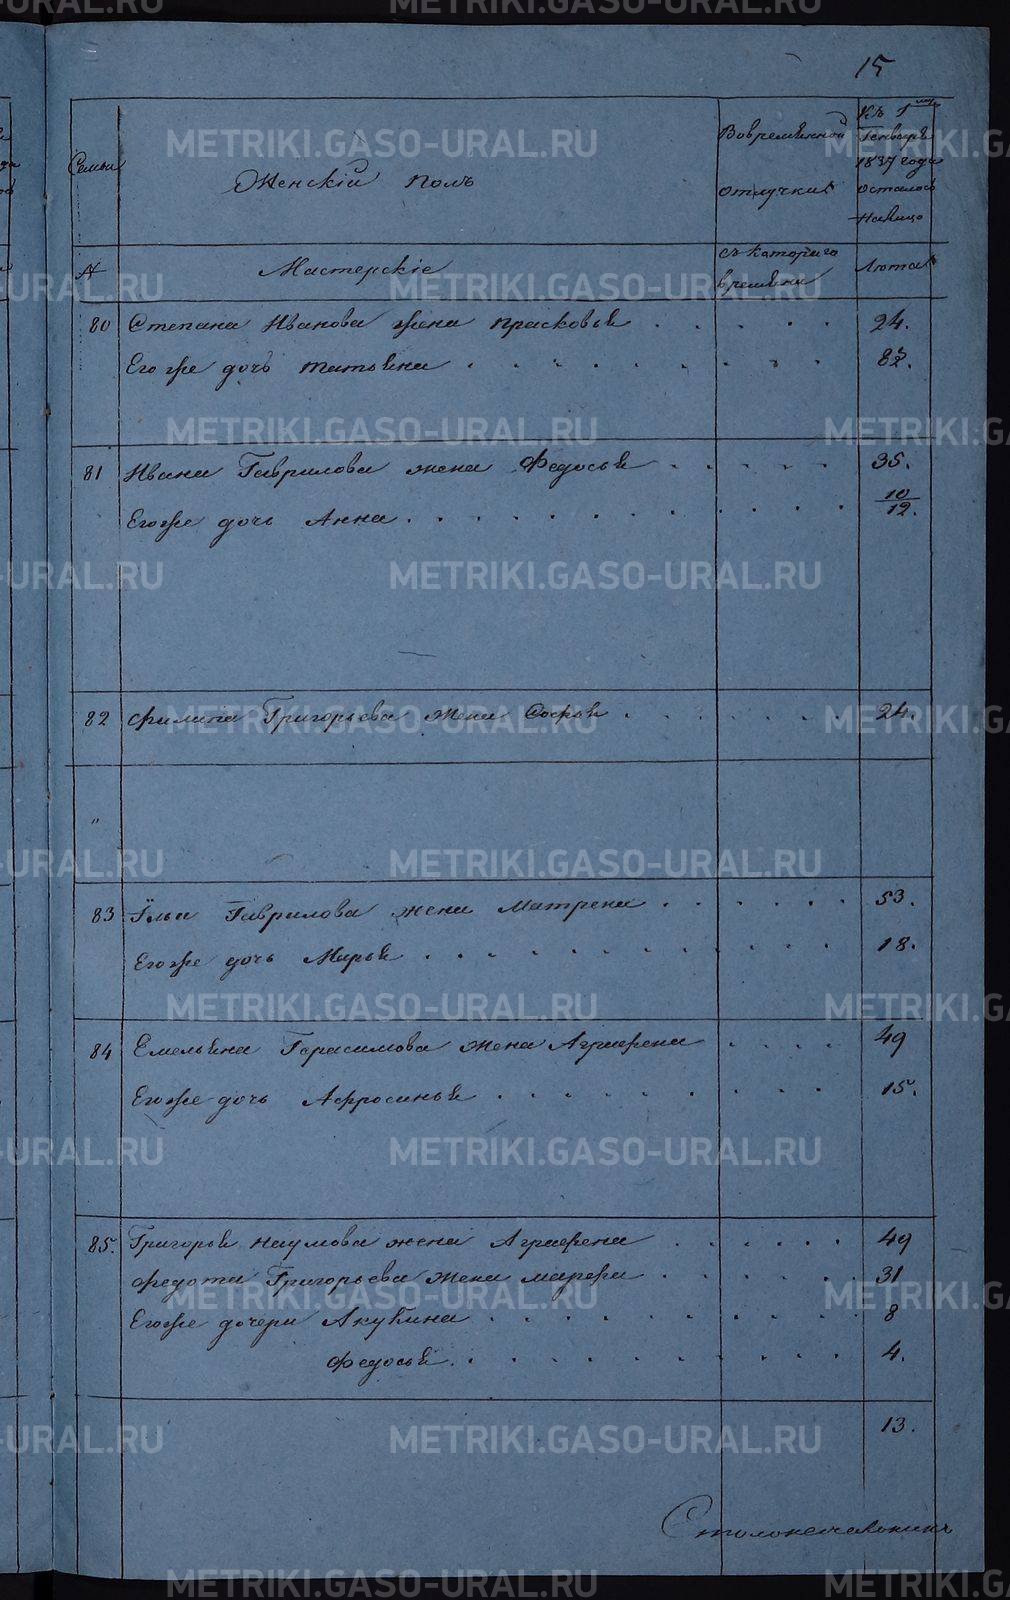 15
Семьи
Женскій полъ
Вовремѣнной
отлучки
Къ 1
Генваря
1837 года
осталось
налицо
№
Мастерскіе
съ каториго
времѣни
Лѣта
80 Степана Иванова жена Прасковья 24.
Его же дочь татьяна
81 Ивана Гаврилова жена Федосья 35.
Егоже дочь Анна 10/12.
82 Филипа Григорьева жена Софья 24.
"
83 Илья Гаврилова жена Матрена 53.
Егоже дочь Марья 18.
84 Емельяна Герасимова жена Аграфена 49
Егоже дочь Афросинья 15.
85. Григорья Наумова жена Аграфена 49
Федота Григорьева жена марфа 31
Егоже дочери Акулина 8
Федосья 4.
13.
Столоначальникъ
METRIKI.GASO-URAL.RU